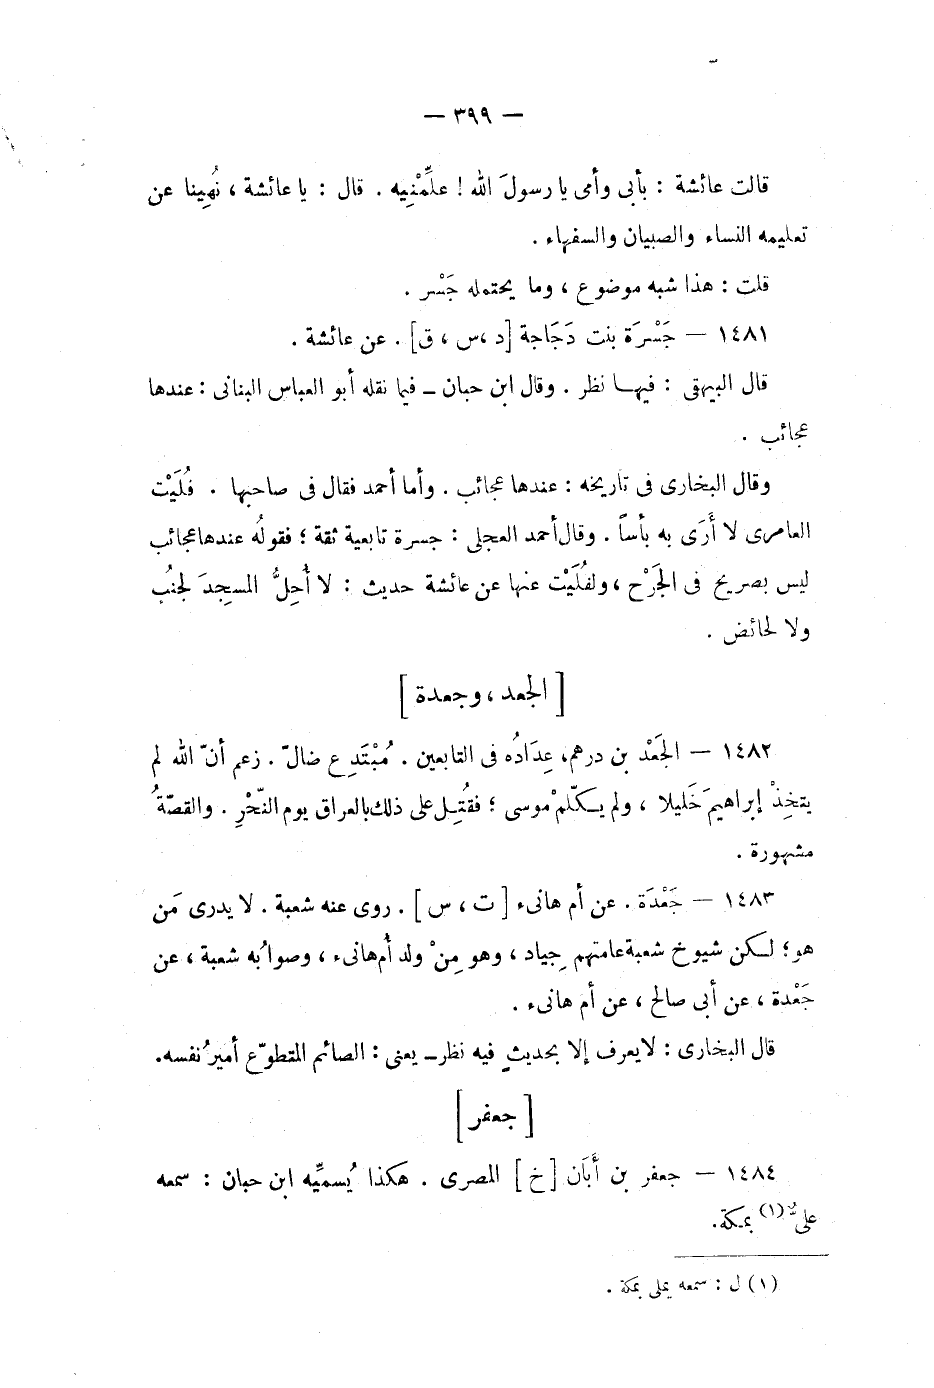 — ٣٩٩ —
قالت عائشة : بأبى وأمى يا رسولَ الله ! علِّمْنِيه . قال : يا عائشة ، نُهِينا عن
تعليمه النساء والصبيان والسفهاء .
قلت : هذا شبه موضوع ، وما يحتمله جَسْر .
١٤٨١ — جَسْرَة بنت دَجَاجة [د ،س ، ق] . عن عائشة .
قال البيهقى : فيهـا نظر . وقال ابن حبان ــ فيما نقله أبو العباس البنانى : عندها
عجائب .
وقال البخارى فى تاريخه : عندها عجائب . وأما أحمد فقال فى صاحبها . فُلَيْت
العامرى لا أَرَى به بأساً . وقال أحمد العجلى : جسرة تابعية ثقة ؛ فقولُه عندها عجائب
ليس بصريح فى الجَرْح ، ولفُلَيْت عنها عن عائشة حديث : لا أُحِلُّ المسجدَ لجنُب
ولا لحائض .
[الجعد ، وجعدة ]
١٤٨٢ — الجَعْد بن درهم، عِدَادُه فى التابعين . مُبْتَدِع ضالّ . زعم أنّ الله لم
يتخِذْ إبراهيمَ خَليلا ، ولم يكلّمْ موسى ؛ فقُتِل على ذلك بالعراق يوم النّحْرِ . والقصّةُ
مشهورة .
١٤٨٣ — جَعْدَة . عن أم هانىء [ ت ، س ] . روى عنه شعبة . لا يدرى مَن
هو؛ لكن شيوخ شعبة عامتهم جِياد ، وهو مِنْ ولد أُم هانىء ، وصوابُه شعبة ، عن
جَعْدة ، عن أبى صالح ، عن أم هانىء .
قال البخارى : لا يعرف إلا بحديثٍ فيه نظر ــ يعنى : الصائم المتطوّع أميرُ نفسه.
[ جعفر ]
١٤٨٤ — جعفر بن أَبَان [خ ] المصرى . هكذا يُسمِّيه ابن حبان : سمعه
علىٌّ (١) بمكة.
(١) ل : سمعه يملى بمكة .